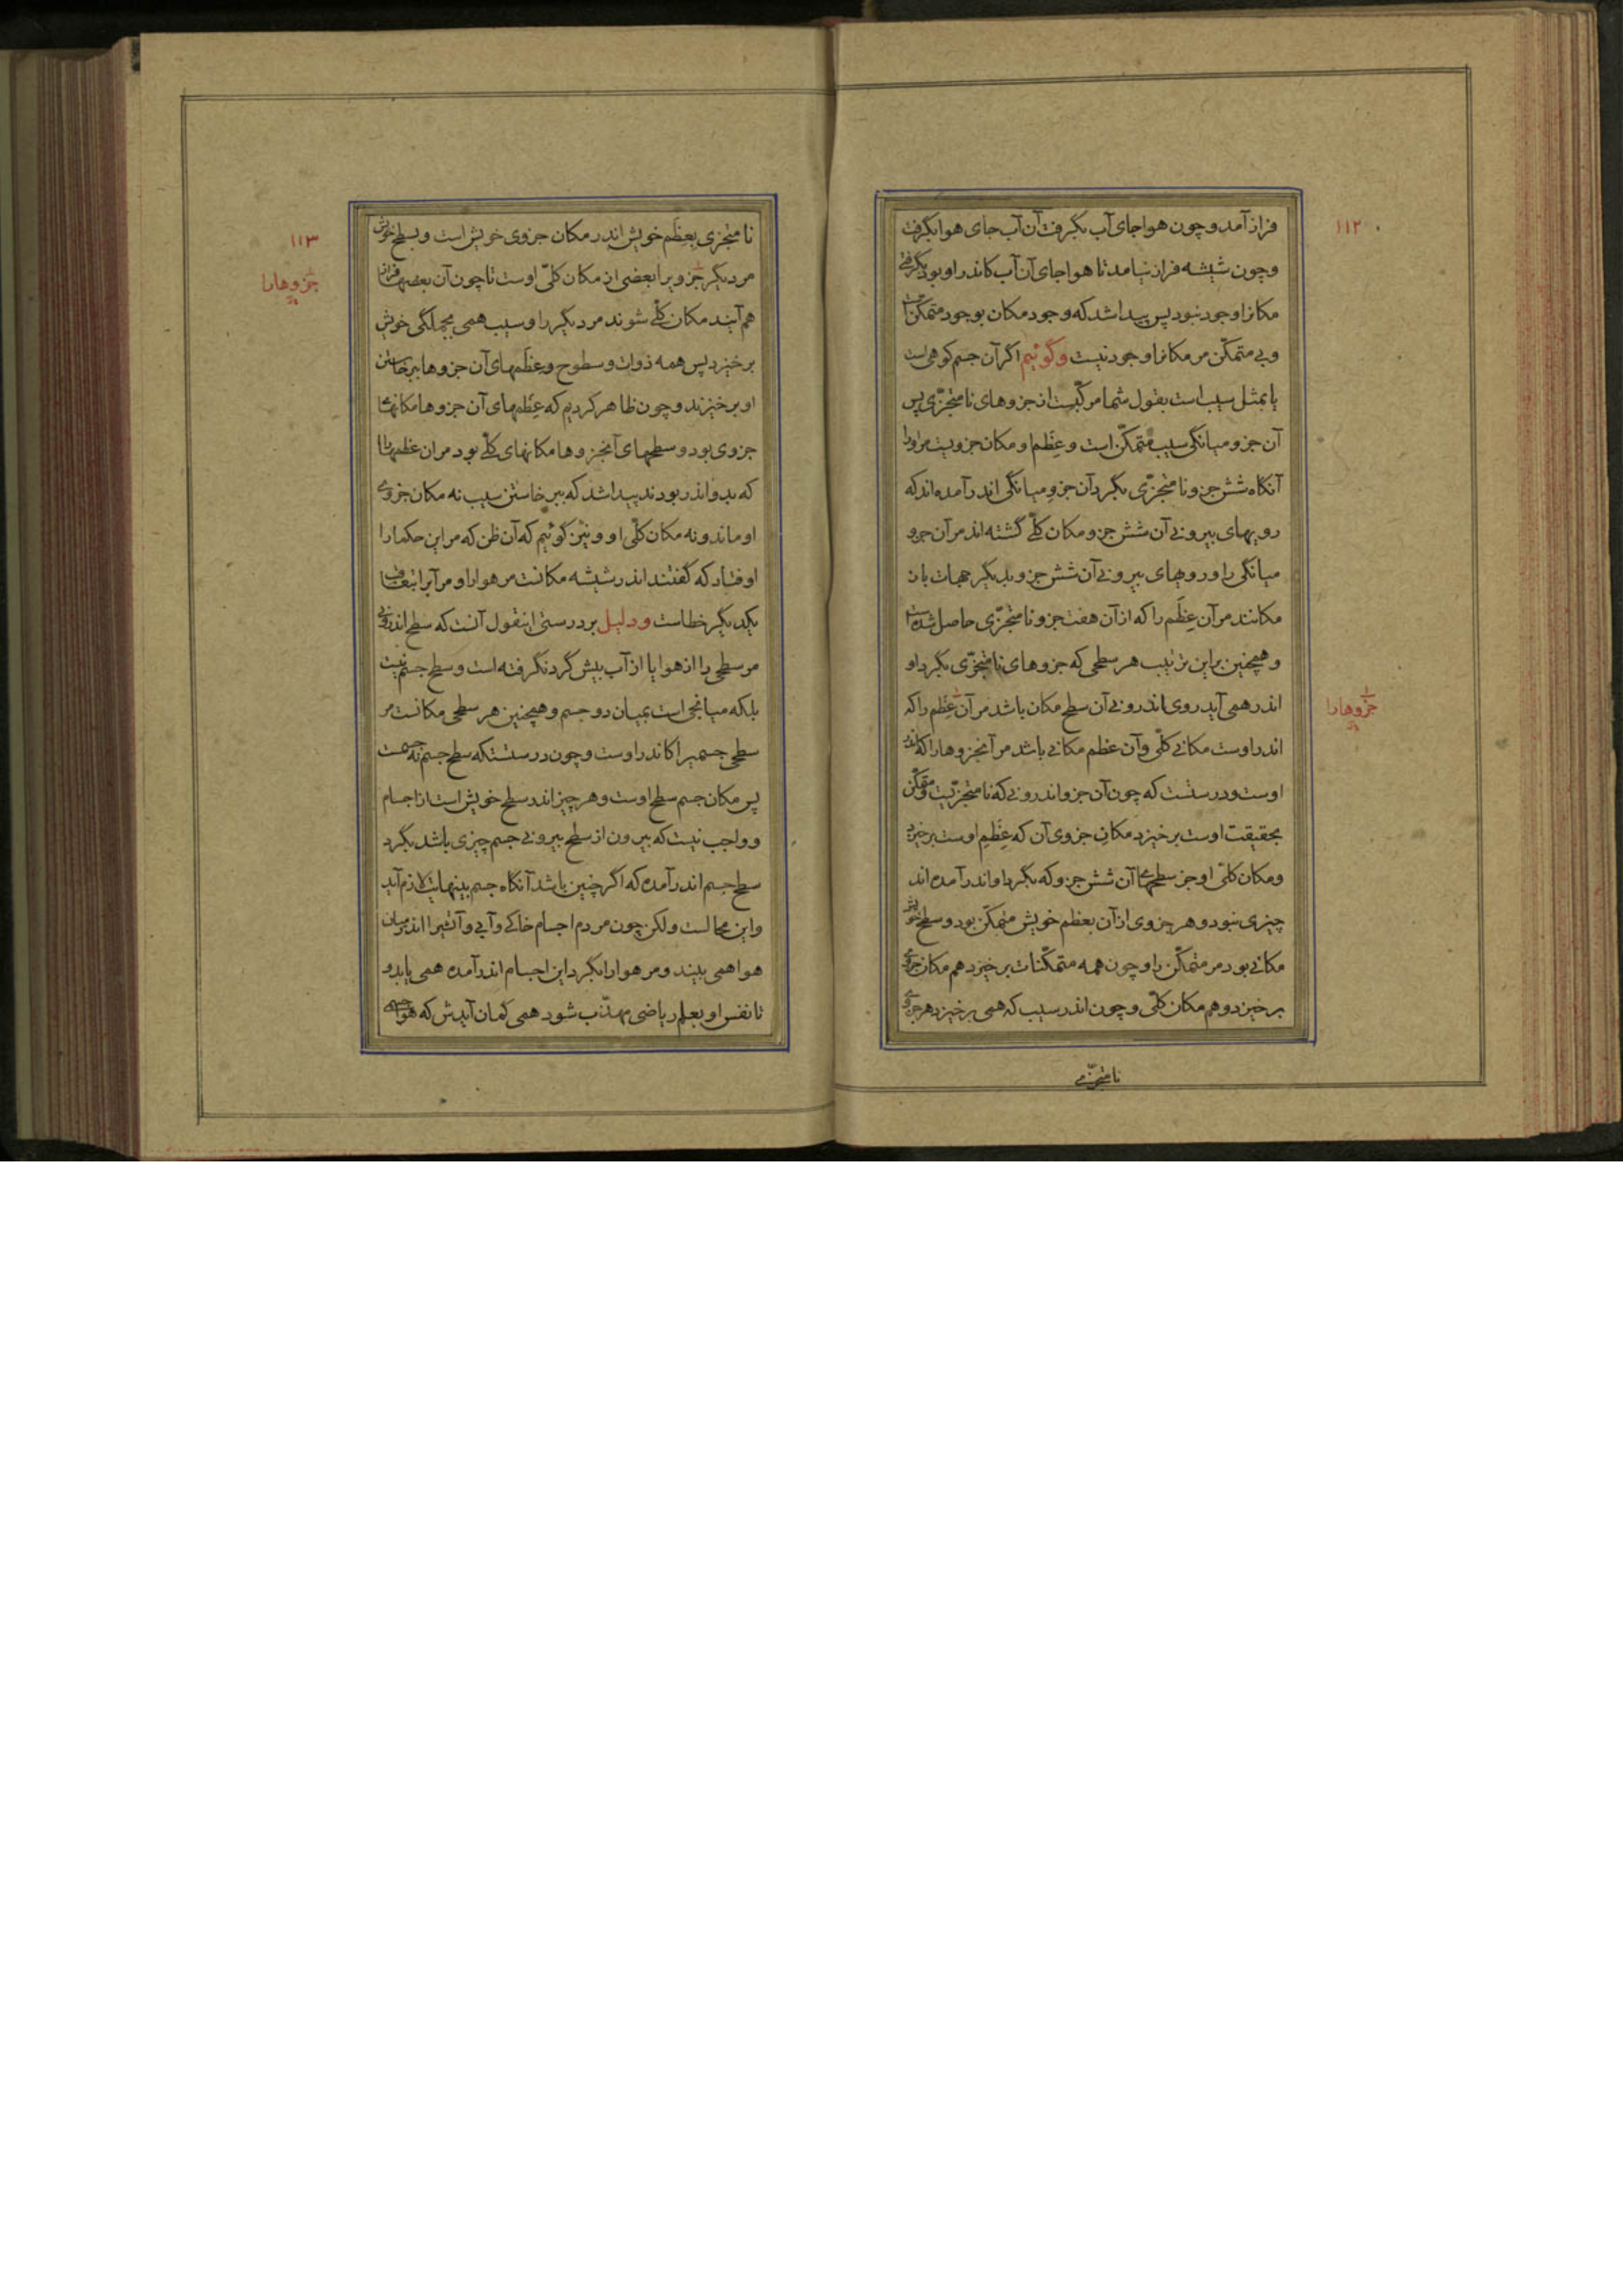 ۱۱۲
فراز آمد و چون هوا جای آب بگرفت آن آب جای هوا بگرفت
و چون شیشه فراز نیامد تا هوا جای آن آب کاندر او بود بگرفتی
مکانرا وجود نبود پس پیدا شد که وجود مکان بوجود متمکن است
و بی متمکّن مر مکانرا وجود نیست و گوئیم اگر آن جسم کوهی است
یا بمثل سیب است بقول شما مرکّبست از جزوهای نامتجزّی پس
آن جزو میانگی سیب متمکّن است و عِظَم او مکان جزویست مر او را
آنگاه شش جزو نامتجزّی بگرد آن جزوِ میانگی اندر آمده اند که
رویهای بیرونی آن شش جزو مکان کلّی گشته اند مر آن جزو
میانگی را و رویهای بیرونی آن شش جزو بدیگر جهات باز
مکانند مر آن عِظَم را که از آن هفت جزو نامتجزّی حاصل شده است
و همچنین براین ترتیب هر سطحی که جزوهای نامتجزّی بگرد او
اندر همی آید روی اندرونی آن سطح مکان باشد مر آن عِظَم را که
جزوها را
اندر اوست مکانی کلّی و آن عظم مکانی باشد مر آنجزوها را که اندر
اوست و درستست که چون آن جزو اندرونی که نامتجزّیست و متمکّن
بحقیقت اوست برخیزد مکانِ جزوی آن که عِظَمِ اوست برخیزد
و مکان کلّی او جز سطحهای آن شش جزو که بگرد او اندر آمده اند
چیزی نبود و هر جزوی از آن بعظم خویش متمکّن بود و سطح خویش
مکانی بود مر متمکّن را و چون همه متمکّنات برخیزد هم مکان جزوی
برخیزد و هم مکان کلّی و چون اندر سیب که همی برخیزد هر جزوی
نامتجزّی
۱۱۳
نامتجزی بعِظَم خویش اندر مکان جزوی خویش است و بسطح خویش
مر دیگر جزویرا بعضی از مکان کلّی اوست تا چون آن بعضها فراز
جزوها را
هم آیند مکان کلّی شوند مر دیگر را و سیب همی بجملگی خویش
برخیزد پس همه ذوات و سطوح و عِظَمهای آن جزوها ببرخاستن
او برخیزند و چون ظاهر کردیم که عِظَمهای آن جزوها مکانهای
جزوی بود و سطحهای آنجزوها مکانهای کلّی بود مر ان عظمها را
که بدو اندر بودند پیدا شد که ببرخاستن سیب نه مکان جزوی
او ماند و نه مکان کلّی او و نیز گوئیم که آن ظن که مر این حکما را
اوفتاد که گفتند اندر شیشه مکانست مر هوا را و مر آبرا بتعاقب
یکدیگر خطاست و دلیل بر درستی اینقول آنست که سطح اندرونی
مر سطحی را از هوا یا از آب بیش گرد نگرفته است و سطح جسم نیست
بلکه میانجی است بمیان دو جسم و همچنین هر سطحی مکانست مر
سطحی جسمیرا کاندر اوست و چون درستستکه سطح جسم نه جسمست
پس مکان جسم سطح اوست و هر چیز اندر سطح خویش است از اجسام
و واجب نیست که بیرون از سطح بیرونی جسم چیزی باشد بگرد
سطح جسم اندر آمده که اگر چنین باشد آنگاه جسم بینهایت لازم آید
و این محالست ولکن چون مردم اجسام خاکی و آبی و آتشیرا اندر میان
هوا همی بیند و مر هوا را بگرد این اجسام اندر آمده همی یابد و
تا نفس او بعلم ریاضی مهذّب شود همی گمان آیدش که هوا